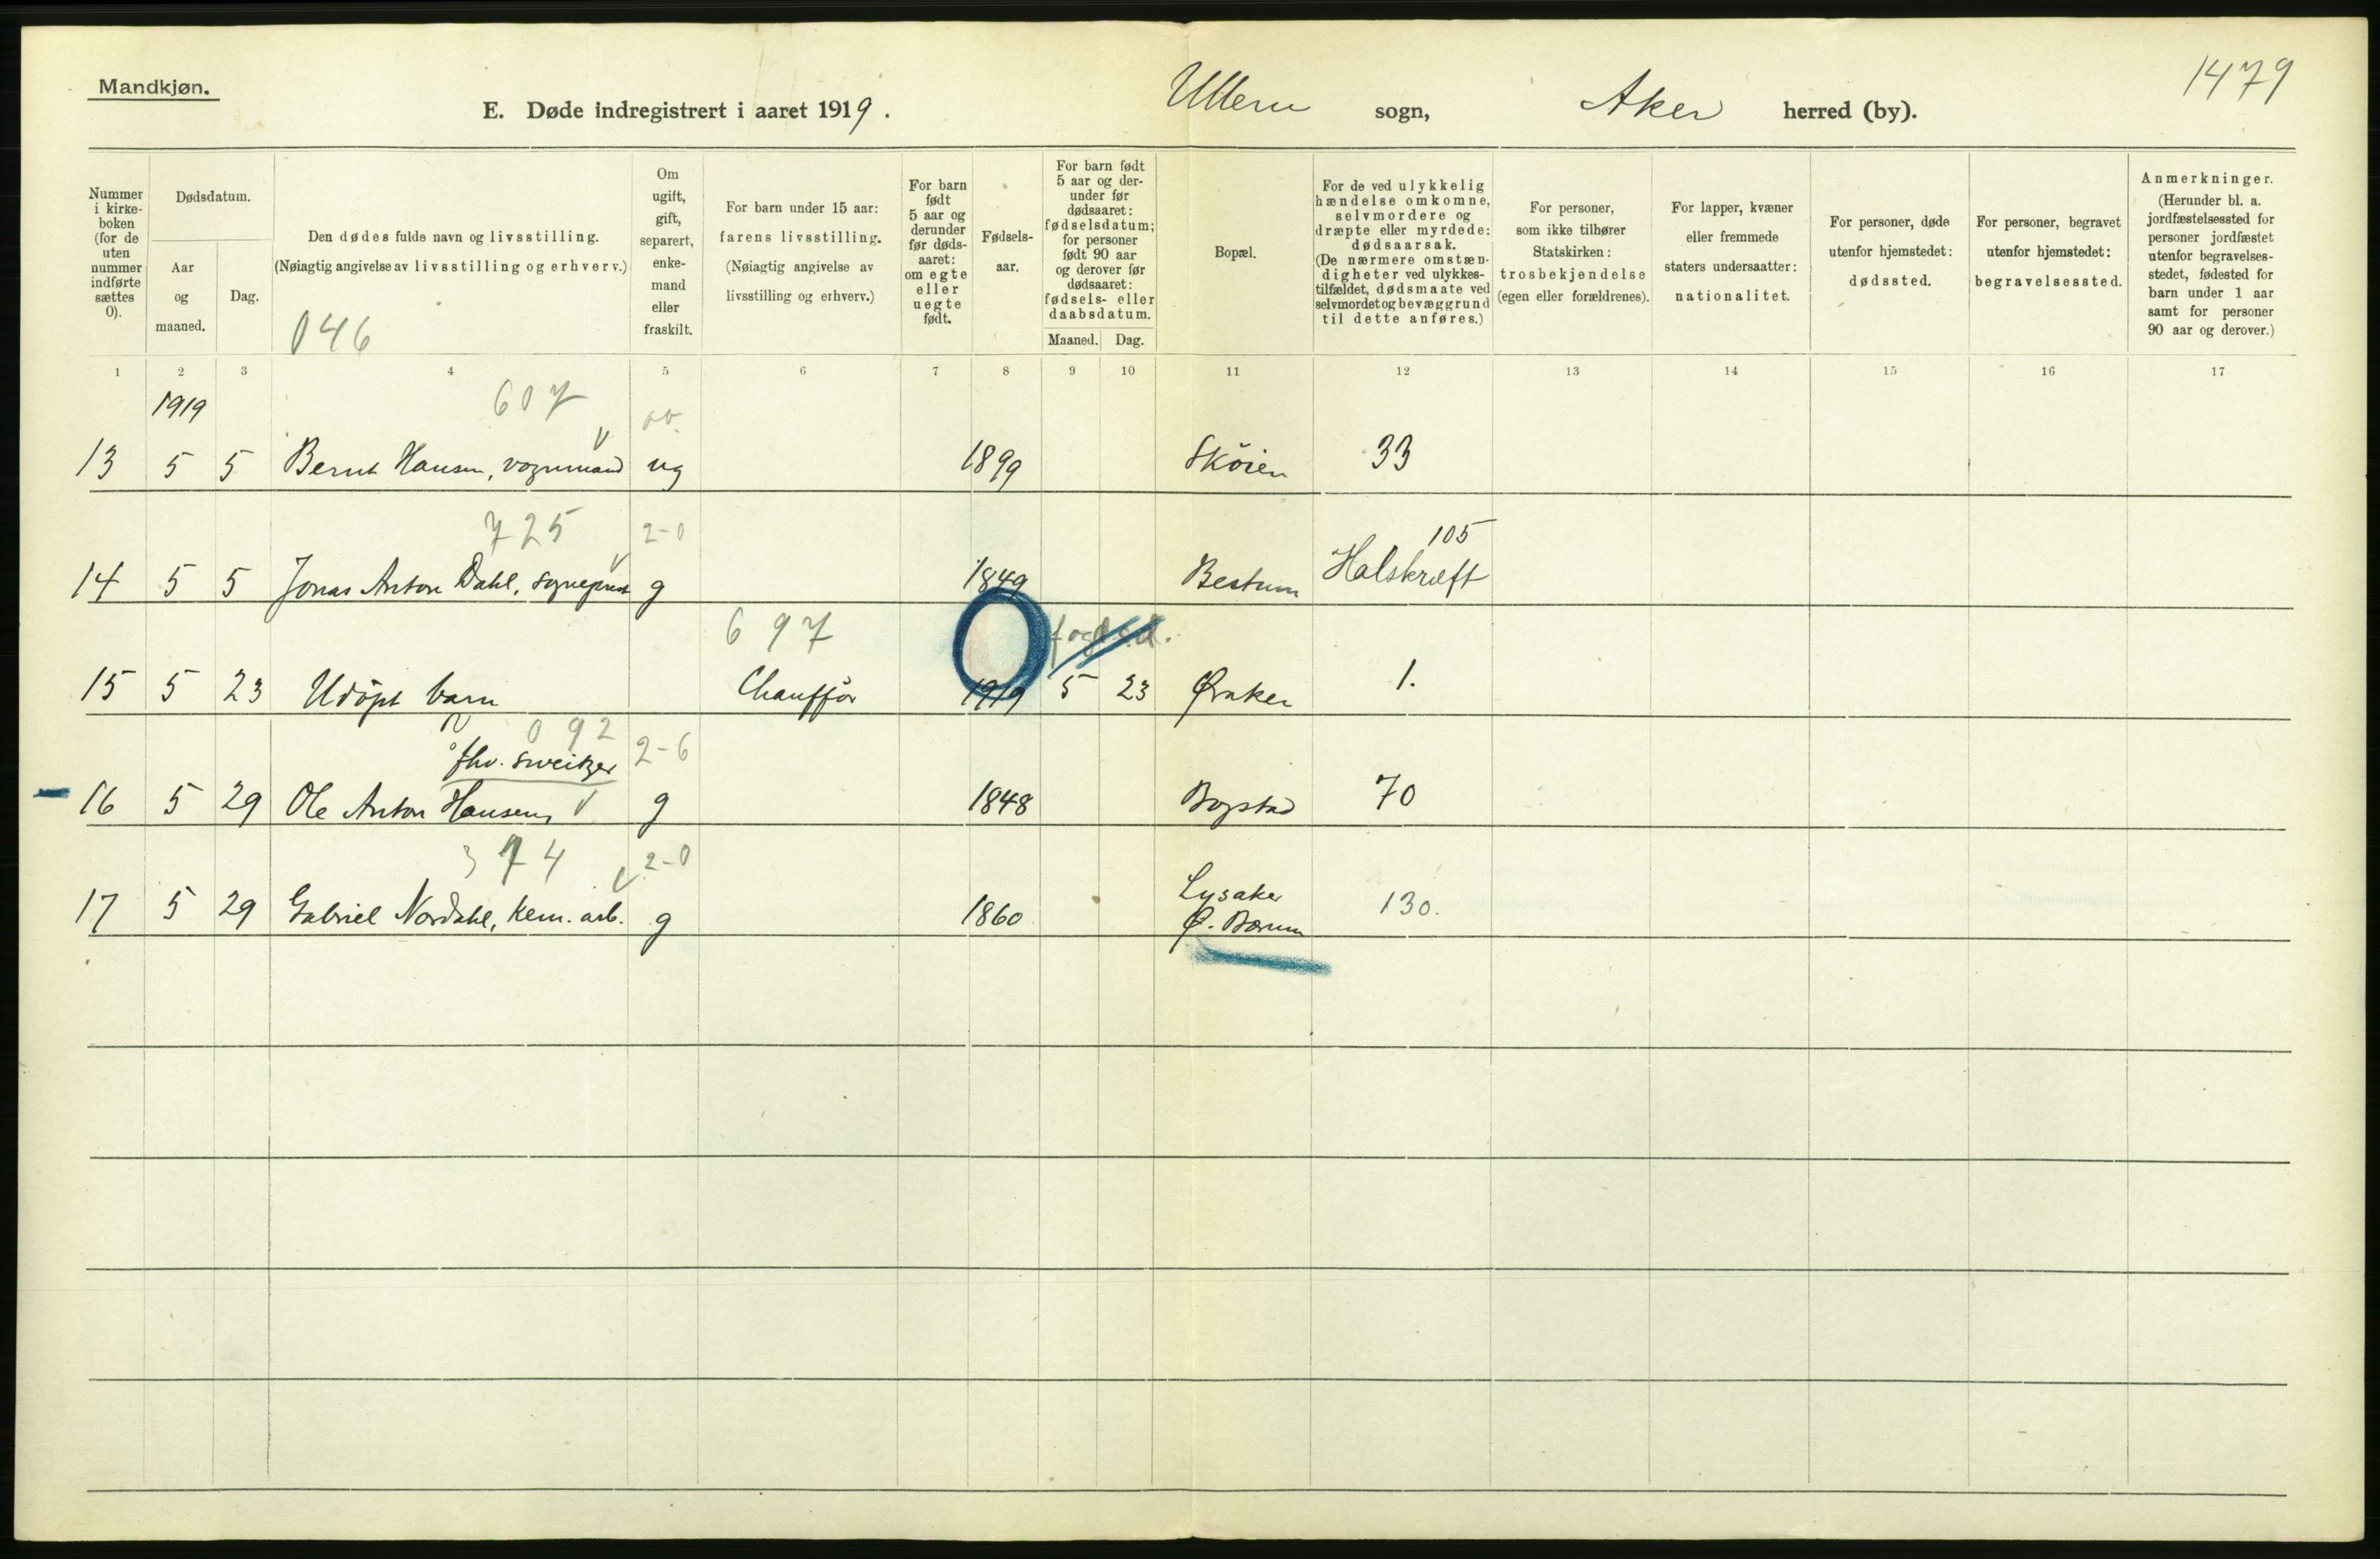 Mandkjøn.
1479
E. Døde indregistrert i aaret 1919. Ullern sogn, Aker herred (by).
Nummer i kirke-boken (for de uten nummer indførte sættes 0).
Dødsdatum.
Aar og maaned.
Dag.
Den dødes fulde navn og livsstilling.
(Nøiagtig angivelse av livsstilling og erhverv.)
046
Om ugift, gift, separert, enke-mand eller fraskilt.
For barn under 15 aar: farens livsstilling. (Nøiagtig angivelse av livsstilling og erhverv.)
For barn født 5 aar og derunder før døds-aaret: om egte eller uegte født.
Fødsels-aar.
For barn født 5 aar og der-under før dødsaaret: fødselsdatum; for personer født 90 aar og derover før dødsaaret: fødsels- eller daabsdatum.
Maaned. Dag.
Bopæl.
For de ved ulykkelig hændelse omkomne, selvmordere og dræpte eller myrdede: dødsaarsak. (De nærmere omstæn-digheter ved ulykkes-tilfældet, dødsmaate ved selvmordet og bevæggrund til dette anføres.)
For personer, som ikke tilhører Statskirken: trosbekjendelse (egen eller forældrenes).
For lapper, kvæner eller fremmede staters undersaatter: nationalitet.
For personer, døde utenfor hjemstedet: dødssted.
For personer, begravet utenfor hjemstedet: begravelsessted.
Anmerkninger. (Herunder bl. a. jordfæstelsessted for personer jordfæstet utenfor begravelses-stedet, fødested for barn under 1 aar samt for personer 90 aar og derover.)
1 2 3 4 5 6 7 8 9 10 11 12 13 14 15 16 17
1919 607
13 5 5 Bernt Hansen, vognmand ug 1899 Sköien 33
725 2-0 105
14 5 5 Jonas Anton Dahl, sogneprest g 1849 Bestum Halskræft
697
15 5 23 Udöpt barn Chaufför 1919 5 23 Øraker 1.
092
fhv. sveitzer 2-6
16 5 29 Ole Anton Hansen, g 1848 Bogstad 70
374 2-0
Lysaker
17 5 29 Gabriel Nordahl, kem. arb. g 1860 Ø. Bærum 130.